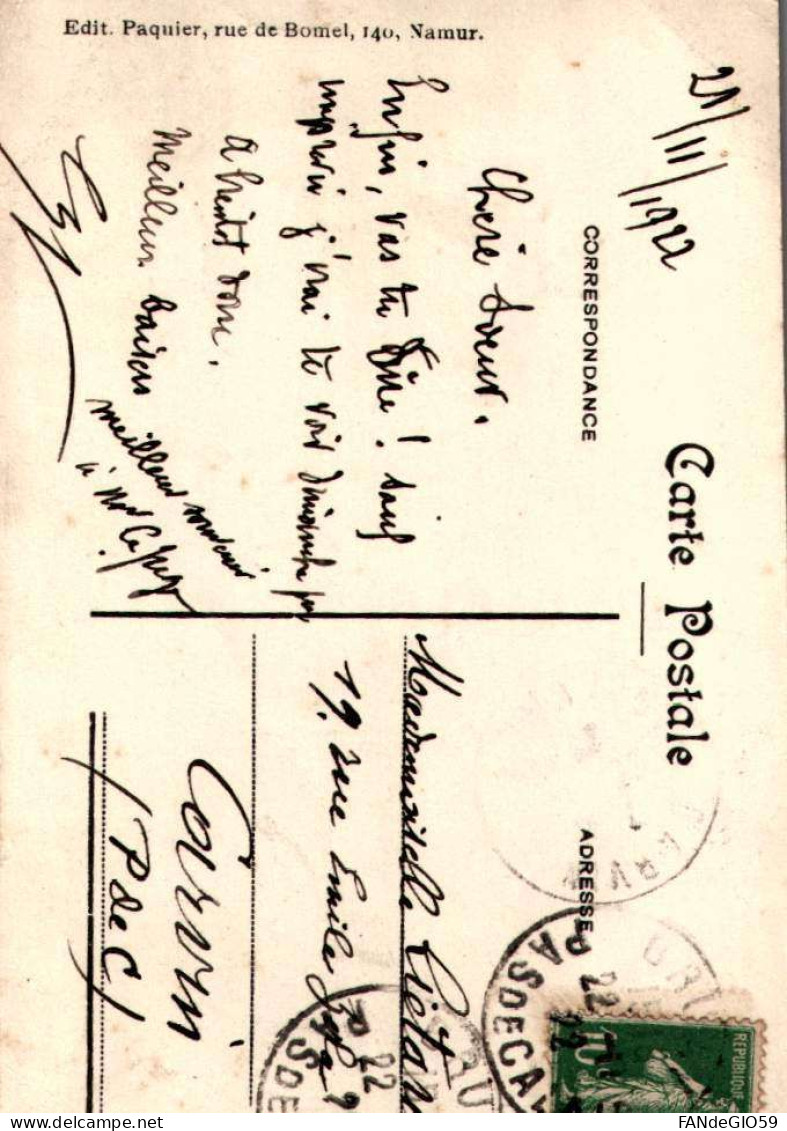 Edit. Paquier, rue de Bomel, 140, Namur.
Carte Postale
CORRESPONDANCE
ADRESSE
21/11/1922
Chère Soeur.
Enfin, vas tu dire! Sauf
imprévu j'irai te voir dimanche
A bientôt donc.
Meilleurs baisers
meilleur souvenir
à
Mademoiselle
19, rue Emile Zola
Carvin
(P de C)
PAS DE CA
22
REPUBLIQUE
10
DelcampE.net
FANdeGIO59